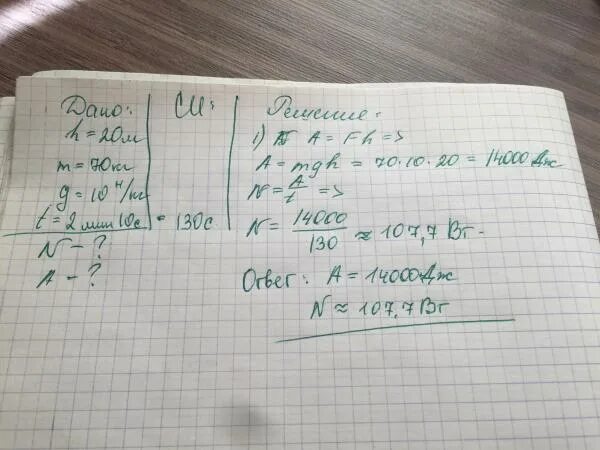 Дано:
h = 20м
m = 70кг
g = 10 Н/кг
t = 2 мин 10с
N - ?
A - ?
СИ:
= 130с
Решение:
1) A = Fh =>
A = mgh = 70·10·20 = 14000 Дж
N = A/t =>
N = 14000/130 ≈ 107,7 Вт
Ответ: A = 14000Дж
N ≈ 107,7Вт